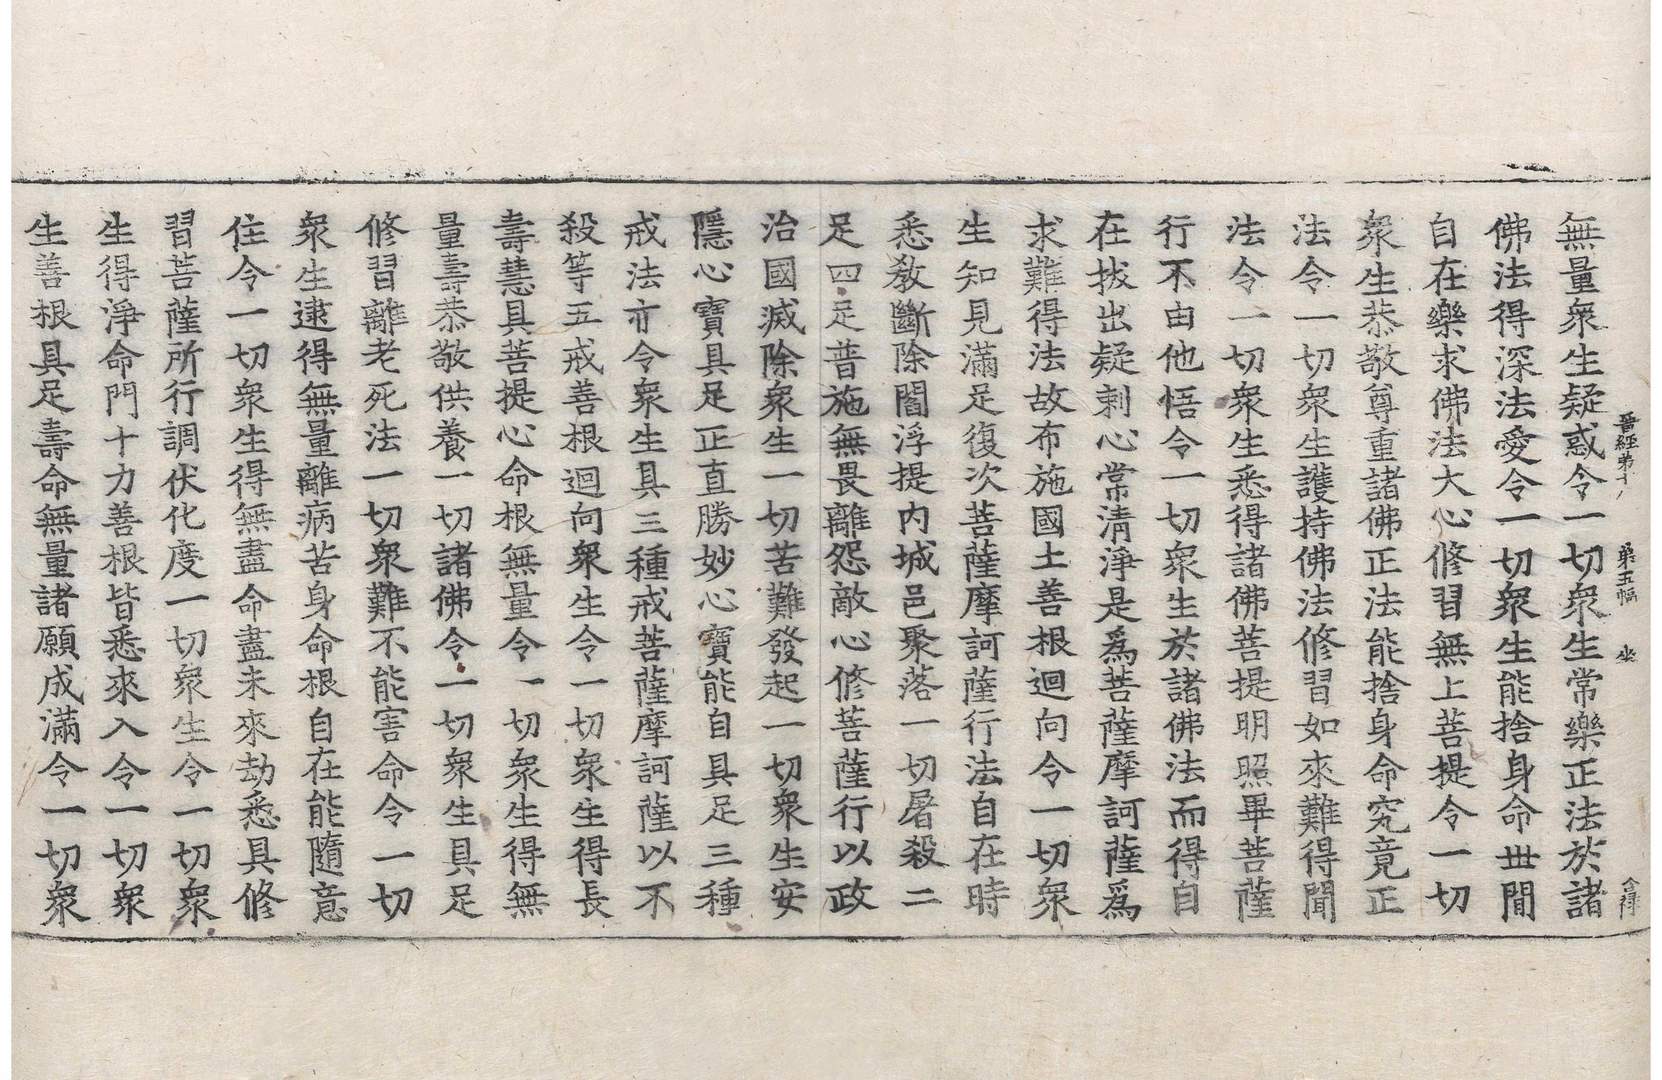 無量衆生疑惑令一切衆生常樂正法於諸
晉經第十
第五幅
佛法得深法愛令一切衆生能捨身命世間
自在樂求佛法大心修習無上菩提令一切
衆生恭敬尊重諸佛正法能捨身命究竟正
法令一切衆生護持佛法修習如來難得聞
法令一切衆生悉得諸佛菩提明照畢菩薩
行不由他悟令一切衆生於諸佛法而得自
在拔出疑刺心常清淨是爲菩薩摩訶薩爲
求難得法故布施國土善根迴向令一切衆
生知見滿足復次菩薩摩訶薩行法自在時
悉敎斷除閻浮提内城邑聚落一切屠殺二
足四足普施無畏離怨敵心修菩薩行以政
治國滅除衆生一切苦難發起一切衆生安
隱心寶具足正直勝妙心寶能自具足三種
戒法亦令衆生具三種戒菩薩摩訶薩以不
殺等五戒善根迴向衆生令一切衆生得長
壽慧具菩提心命根無量令一切衆生得無
量壽恭敬供養一切諸佛令一切衆生具足
修習離老死法一切衆難不能害命令一切
衆生逮得無量離病苦身命根自在能隨意
住令一切衆生得無盡命盡未來劫悉具修
習菩薩所行調伏化度一切衆生令一切衆
生得淨命門十力善根皆悉來入令一切衆
生善根具足壽命無量諸願成滿令一切衆